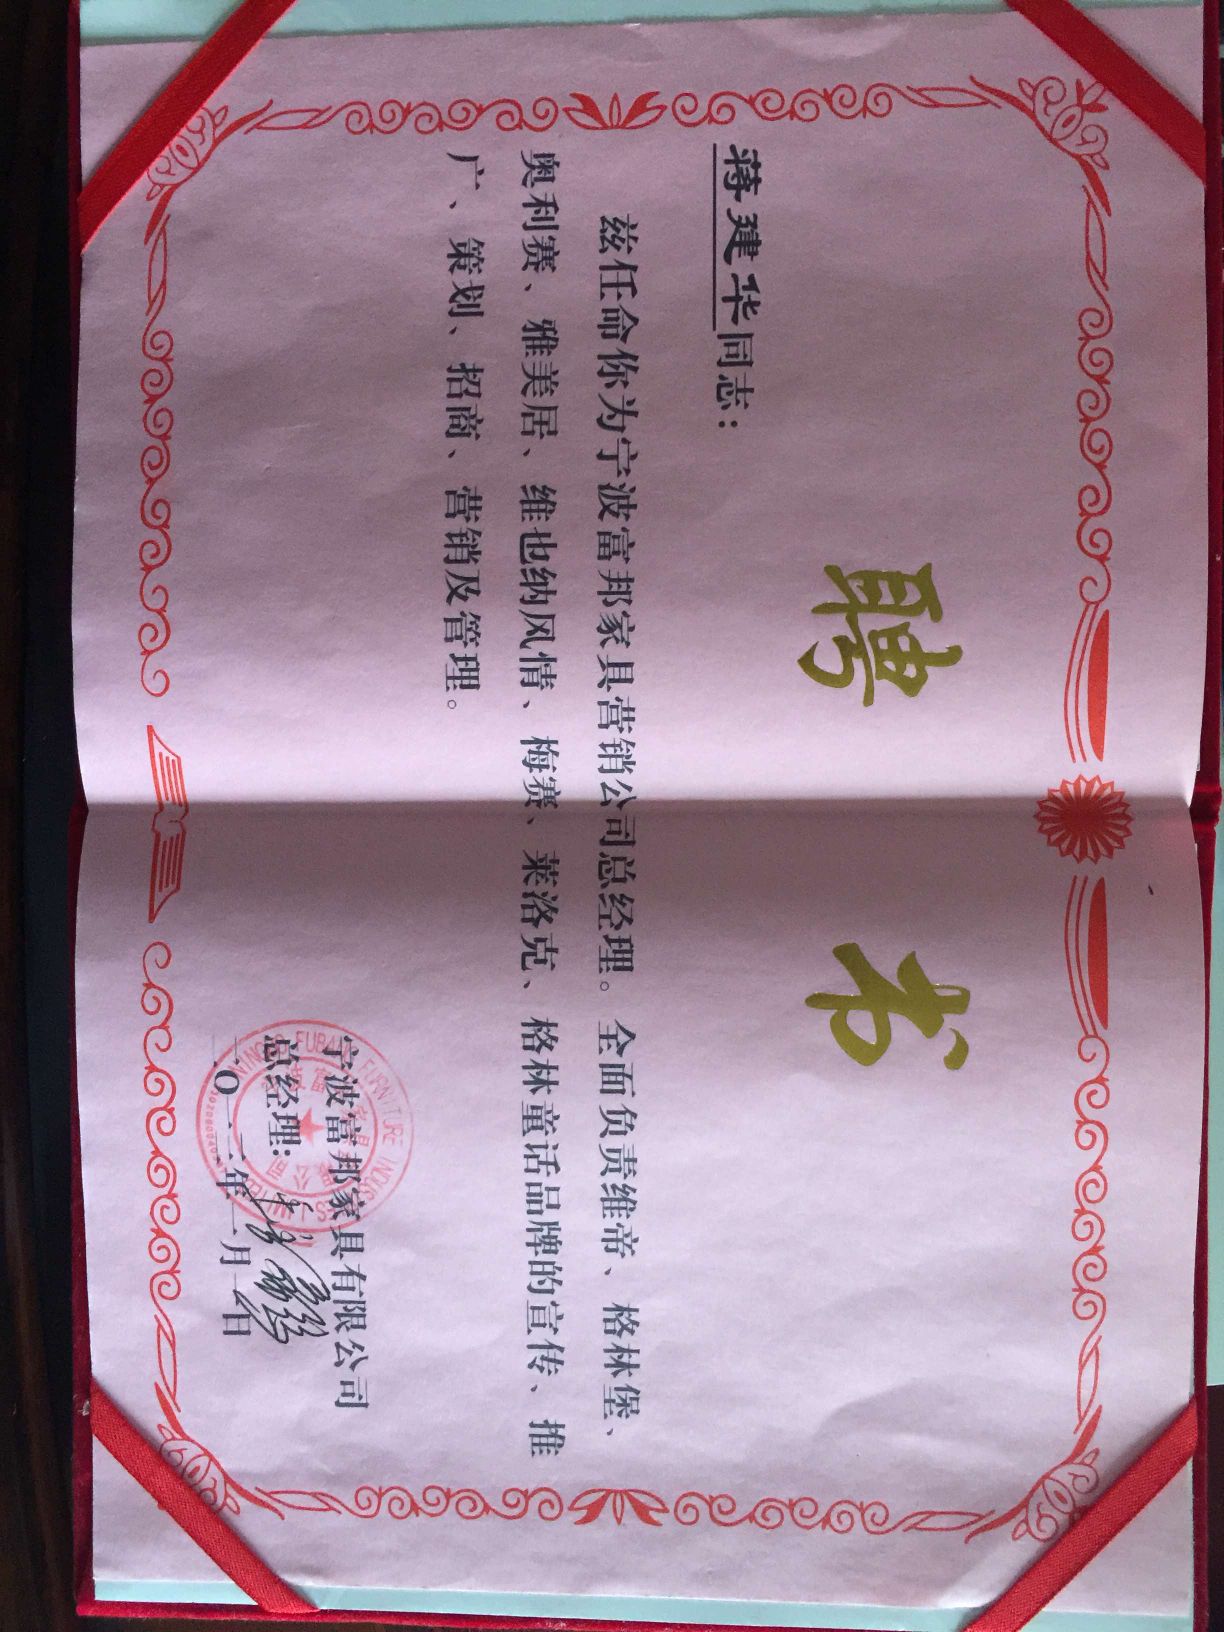 聘书
蒋建华同志：
兹任命你为宁波富邦家具营销公司总经理。全面负责维帝、格林堡、
奥利赛、雅美居、维也纳风情、梅赛、莱洛克、格林童话品牌的宣传、推
广、策划、招商、营销及管理。
宁波富邦家具有限公司
总经理：
NINGBO FUBANG FURNITURE INDUSTRIES LIMITED